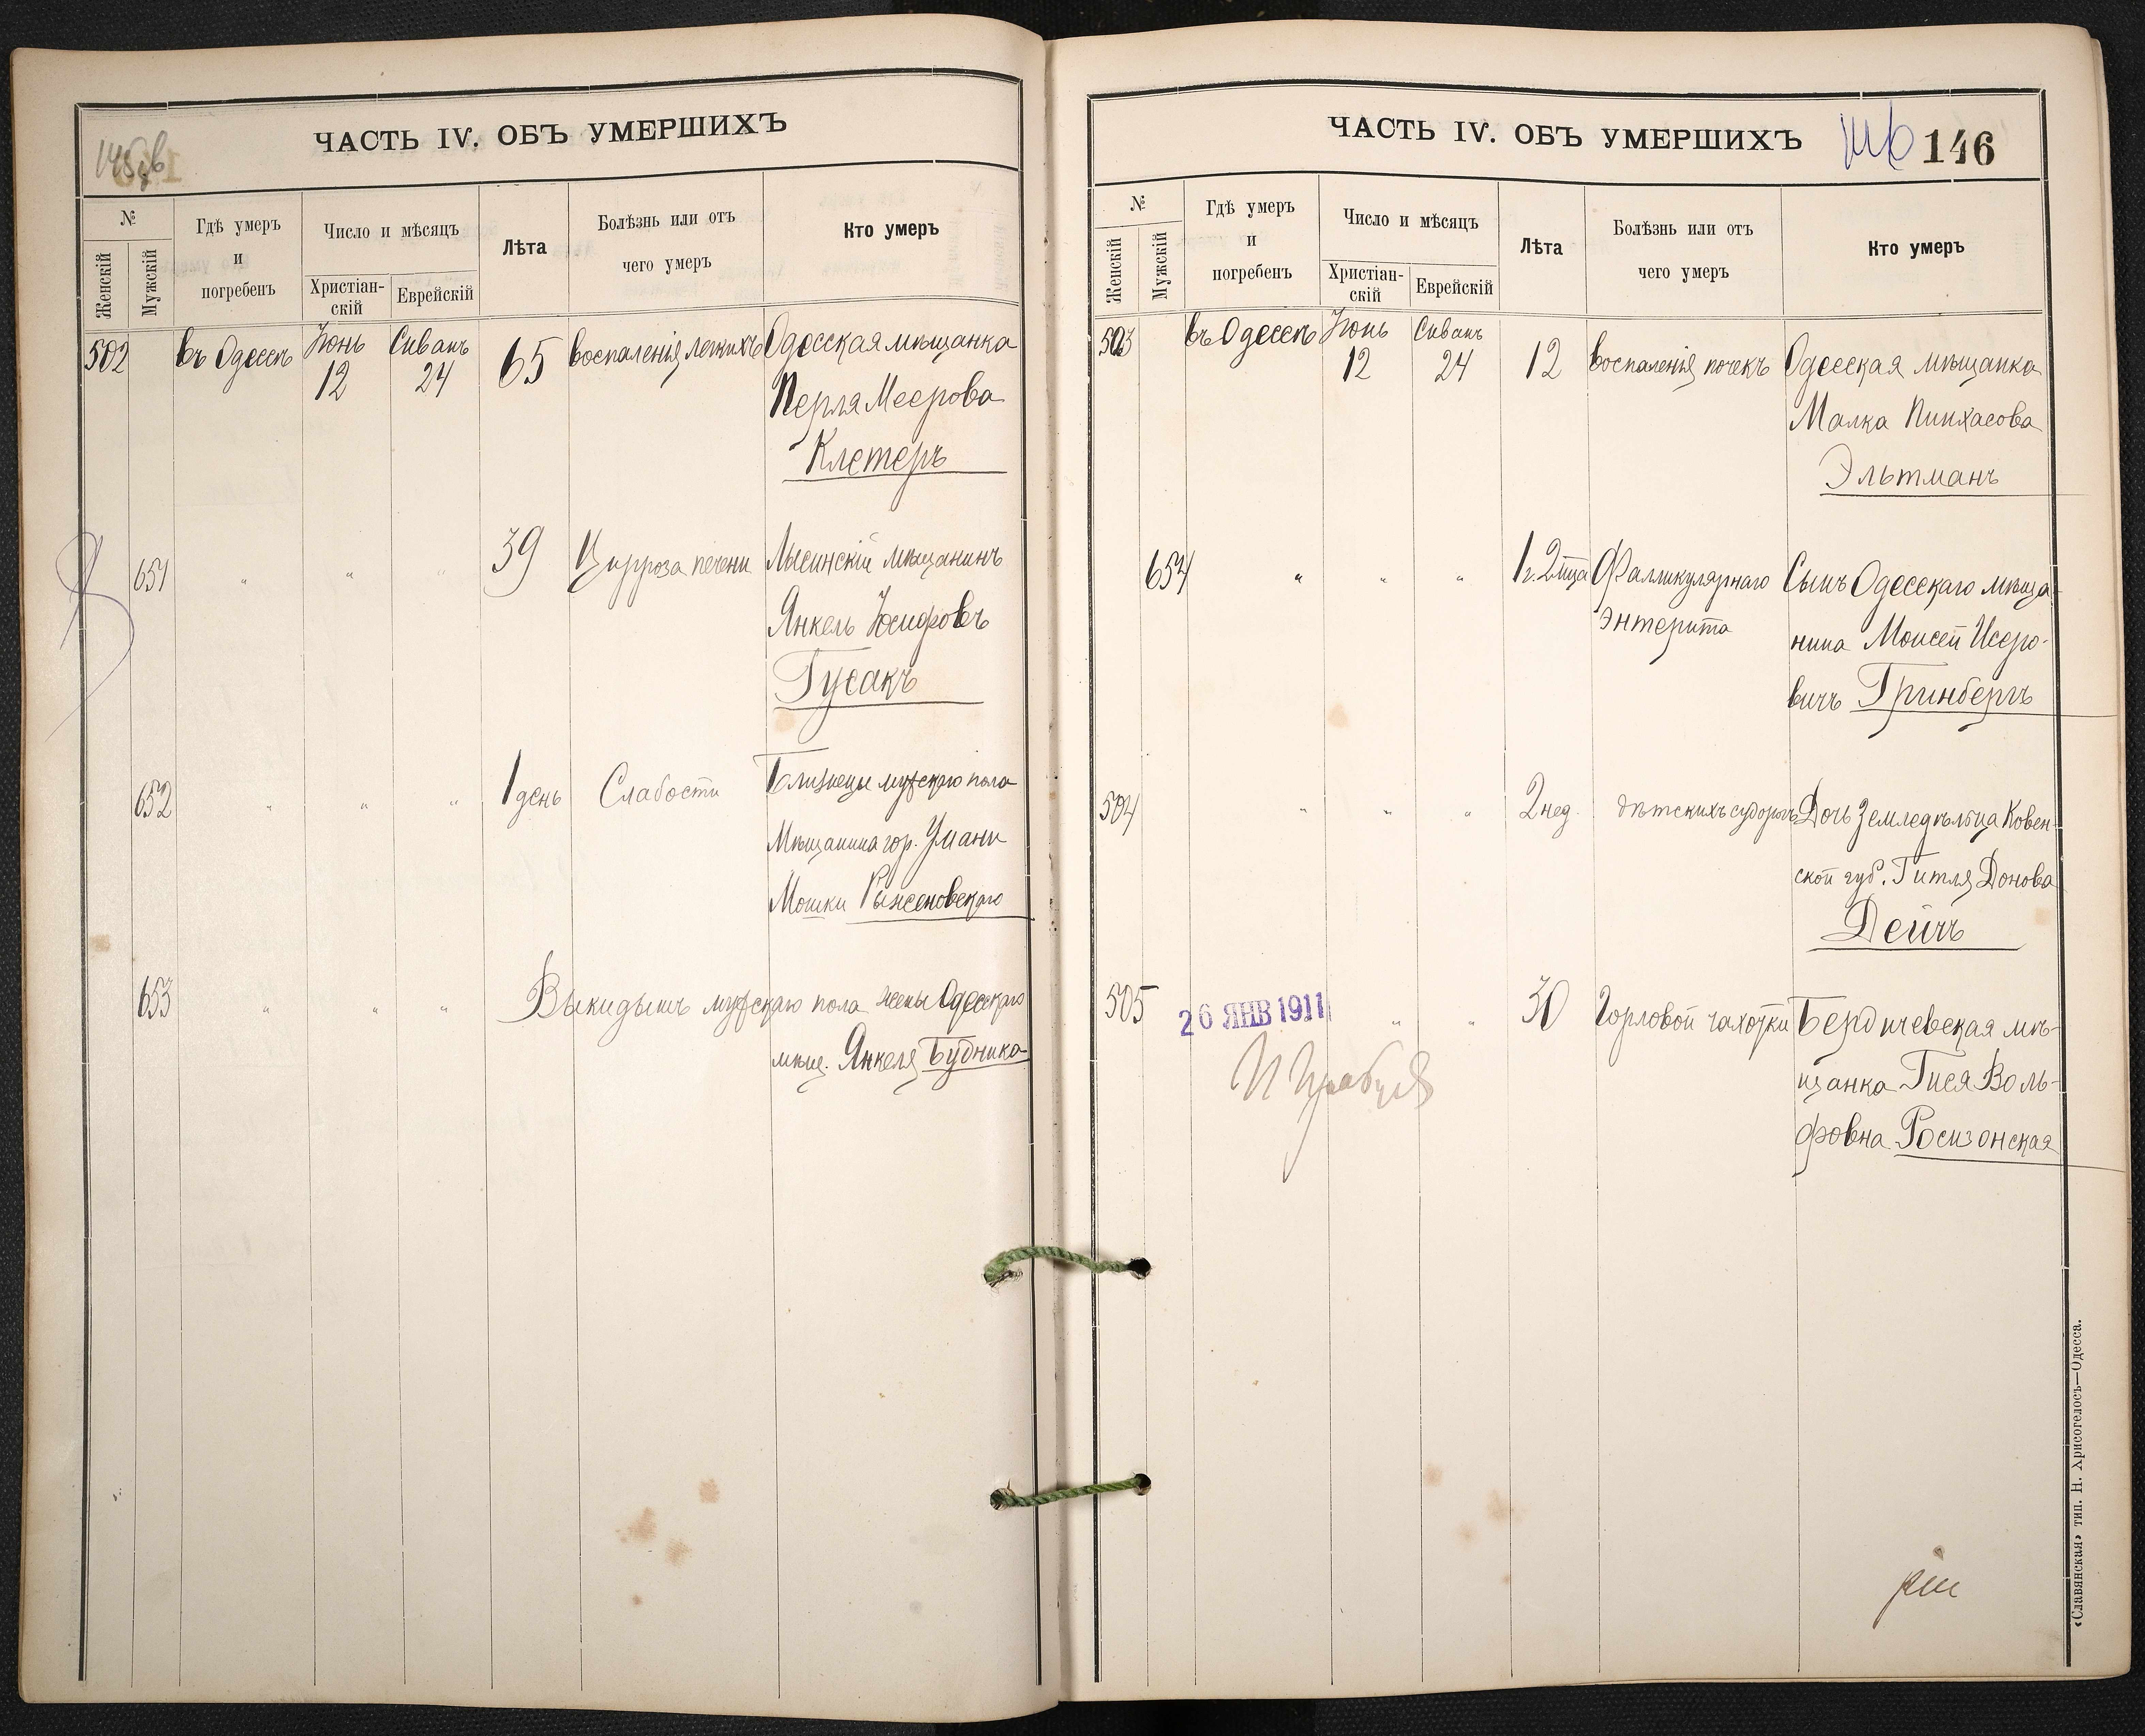 ЧАСТЬ IV. ОБЪ УМЕРШИХЪ
№
Женскій
Мужскій
Гдѣ умеръ
и
погребенъ
Число и мѣсяцъ
Христіан-
скій
Еврейскій
Лѣта
Болѣзнь или отъ
чего умеръ
Кто умеръ
502 въ Одессѣ Іюнь 12 Сиванъ 24 65 воспаленія легкихъ Одесская мѣщанка
Перля Меерова
Клетеръ
651 " " " 39 Цирроза печени мѣщанинъ
Янкель Іосифовъ
Гусакъ
652 " " " 1 день Слабости Близнецы мужскаго пола
Мѣщанина гор. Умани
Мошки
653 " " " Выкидышъ мужскаго пола жены Одесскаго
мѣщ. Янкеля Будника
ЧАСТЬ IV. ОБЪ УМЕРШИХЪ
146
№
Женскій
Мужскій
Гдѣ умеръ
и
погребенъ
Число и мѣсяцъ
Христіан-
скій
Еврейскій
Лѣта
Болѣзнь или отъ
чего умеръ
Кто умеръ
503 въ Одессѣ Іюнь 12 Сиванъ 24 12 воспаленія почекъ Одесская мѣщанка
Малка Пинхасова
Эльтманъ
654 " " " 1 г. 2 мца Фалликулярнаго Сынъ Одесскаго мѣща-
энтерита нина Моисей Исеро-
вичъ Гринбергъ
504 " " " 2 нед. дѣтскихъ судорогъ Дочь Земледѣльца Ковен-
ской губ. Гитля Донова
Дейчъ
505 26 ЯНВ 1911 " " 30 Горловой чахотки Бердичевская мѣ-
щанка Гися Воль-
фовна Росизонская
«Славянская» тип. Н. Хрисогелосъ—Одесса.